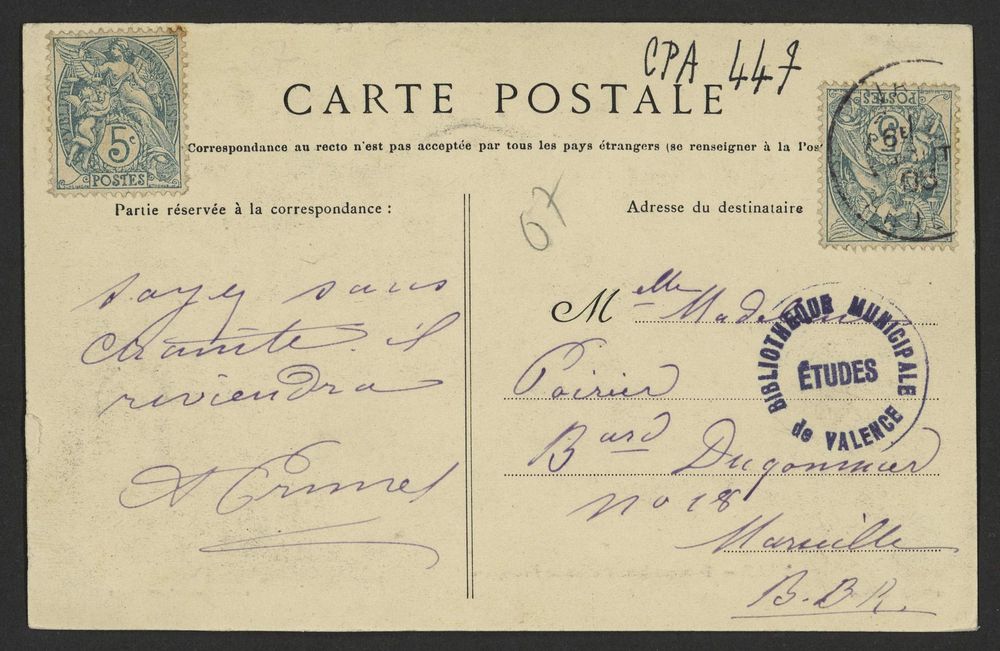 CPA 447
CARTE POSTALE
Correspondance au recto n'est pas acceptée par tous les pays étrangers (se renseigner à la Pos
5c
POSTES
POSTES
Partie réservée à la correspondance :
67
Adresse du destinataire
soyez sans
crainte il
reviendra
Melle
Poirier
Bard Dugommier
no 18
Marseille
B.D.R.
BIBLIOTHEQUE MUNICIPALE
ÉTUDES
de VALENCE